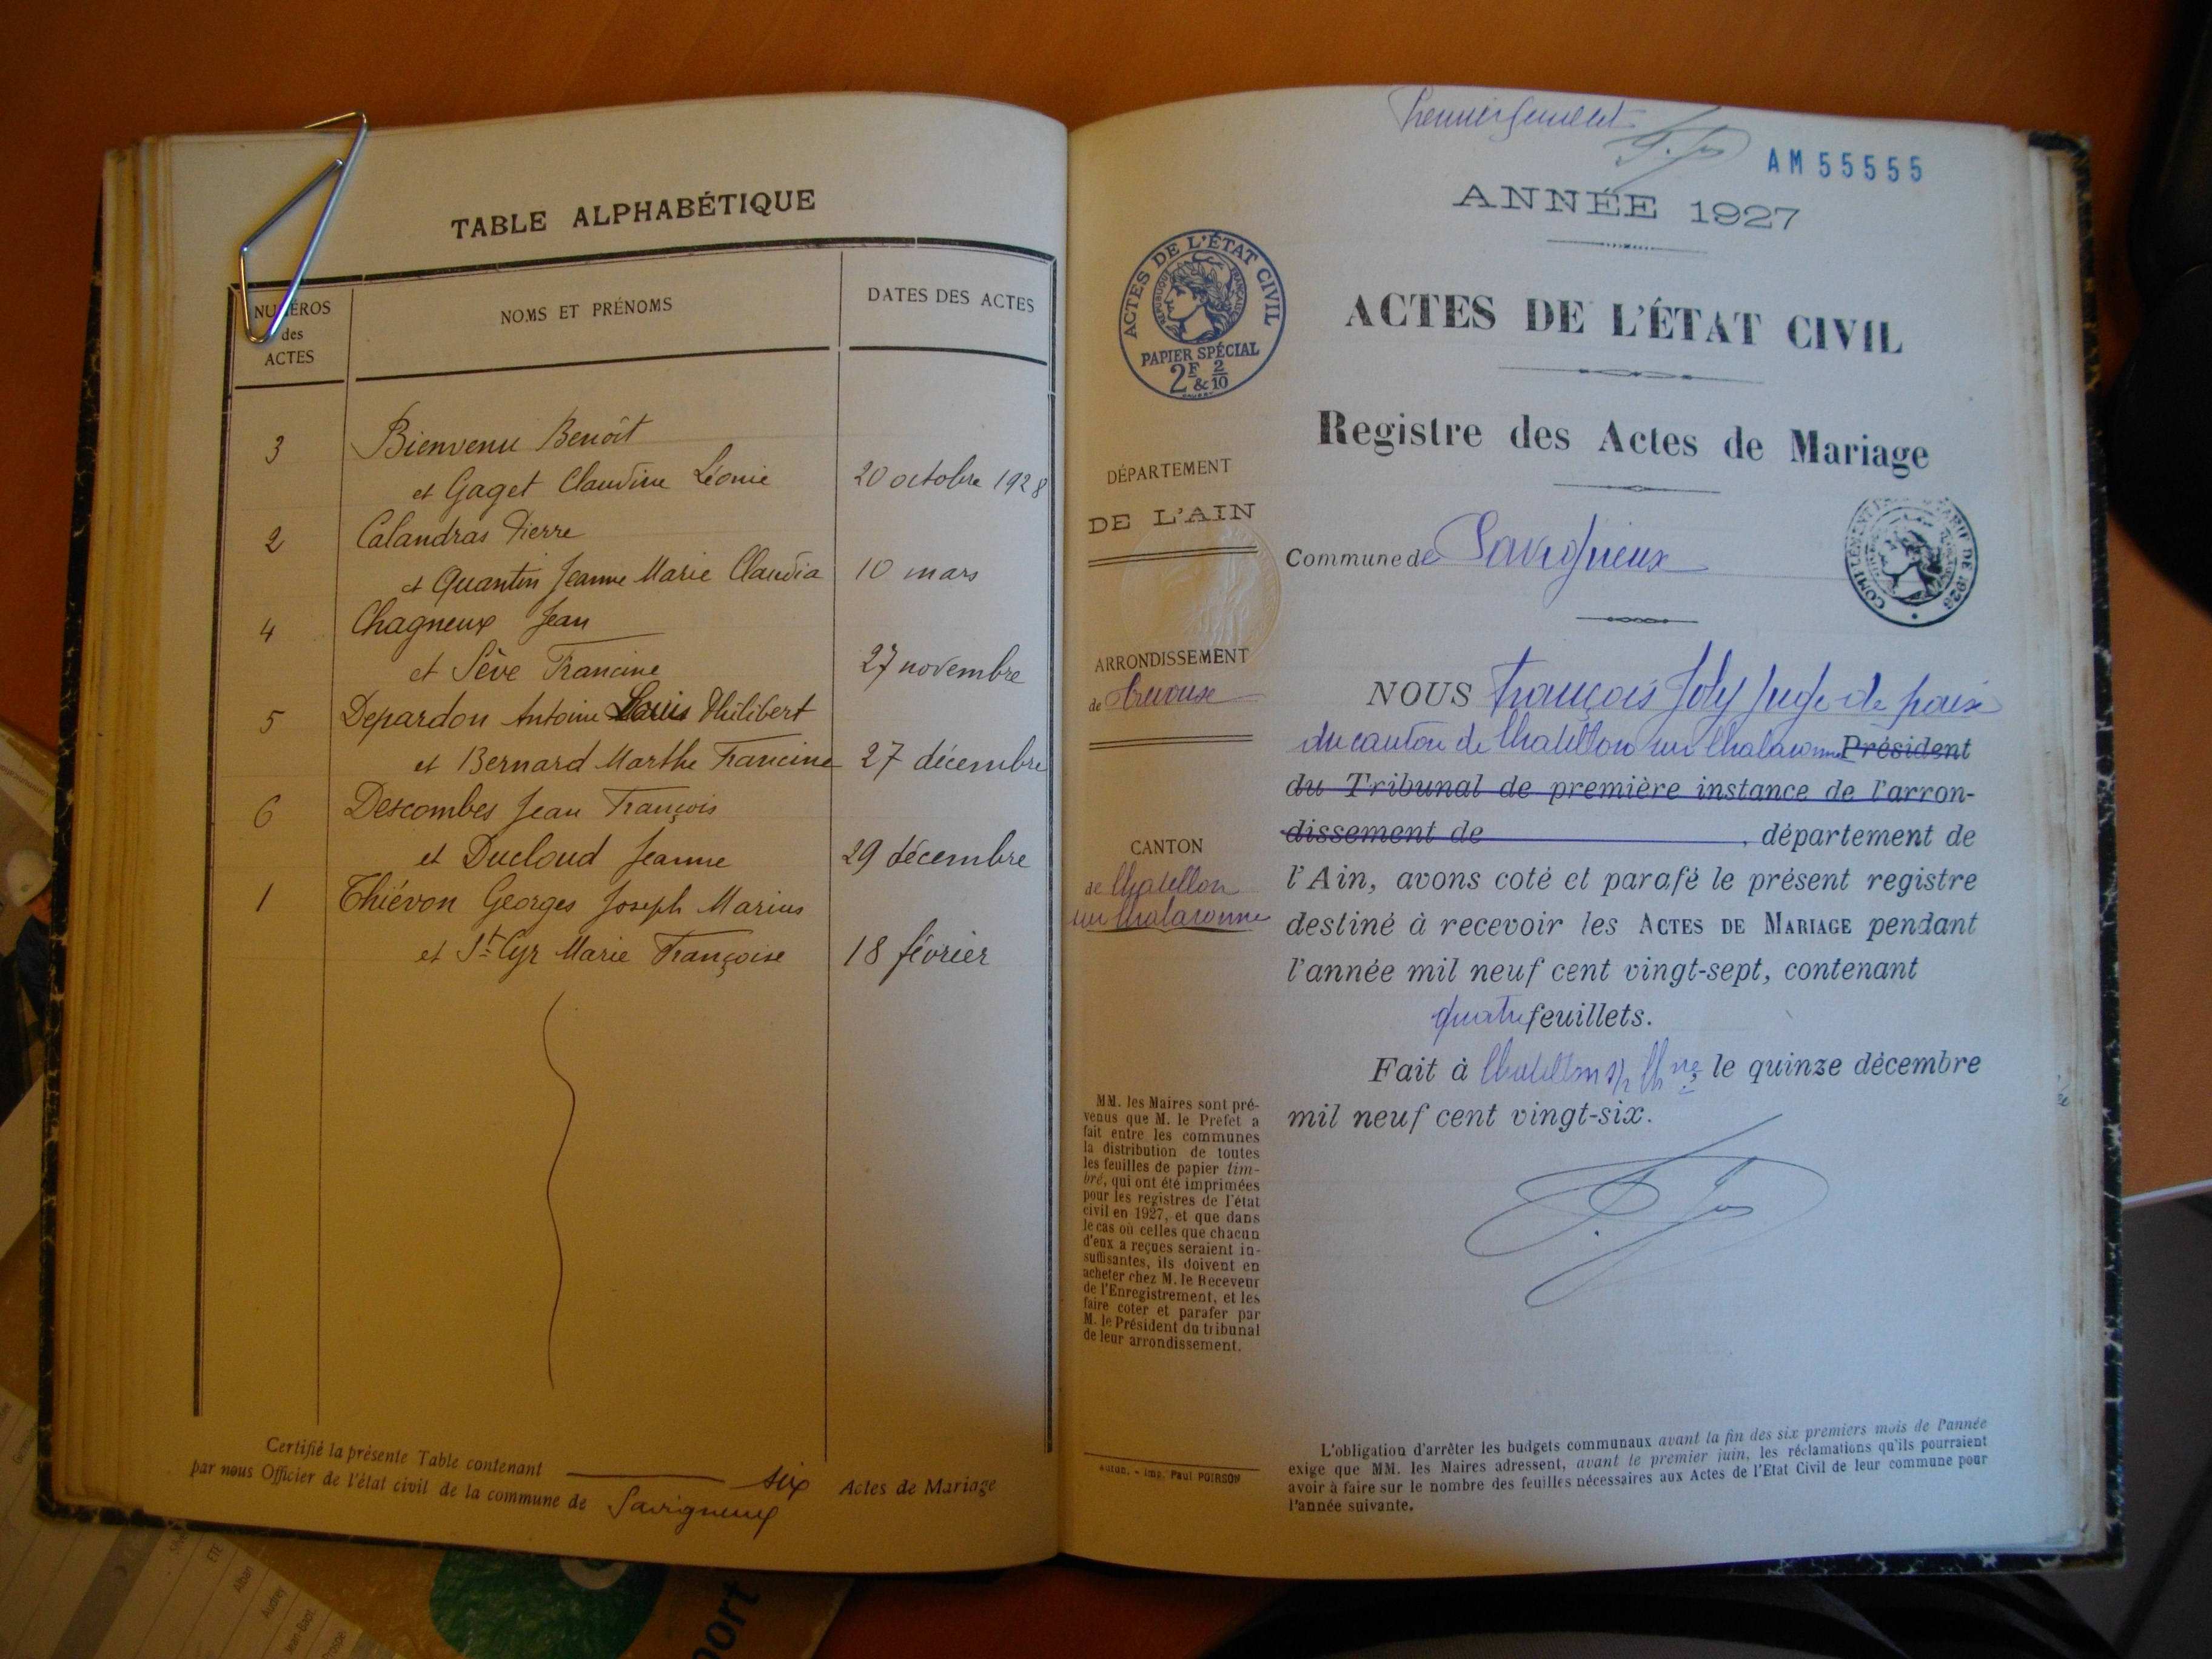 TABLE ALPHABÉTIQUE
NUMÉROS des ACTES
NOMS ET PRÉNOMS
DATES DES ACTES
3 Bienvenu Benoît
et Gaget Claudine Léonie 20 octobre 1928
2 Calandras Pierre
et Quantin Jeanne Marie Claudia 10 mars
4 Chagneux Jean
et Sève Francine 27 novembre
5 Depardon Antoine Louis Philibert
et Bernard Marthe Francine 27 décembre
6 Descombes Jean François
et Ducloud Jeanne 29 décembre
1 Thiévon Georges Joseph Marius
et St Cyr Marie Françoise 18 février
Certifié la présente Table contenant six Actes de Mariage
par nous Officier de l'état civil de la commune de Savigneux
Premier feuillet
AM 55555
ANNÉE 1927
ACTES DE L'ÉTAT CIVIL
RÉPUBLIQUE FRANÇAISE
PAPIER SPÉCIAL
2F & 2/10
ACTES DE L'ÉTAT CIVIL
Registre des Actes de Mariage
DÉPARTEMENT
DE L'AIN
Commune de Savigneux
ARRONDISSEMENT
de Trévoux
CANTON
de Chatillon
sur Chalaronne
NOUS François Joly Juge de paix
du canton de Chatillon sur Chalaronne Président
du Tribunal de première instance de l'arron-
dissement de , département de
l'Ain, avons coté et parafé le présent registre
destiné à recevoir les ACTES DE MARIAGE pendant
l'année mil neuf cent vingt-sept, contenant
quatre feuillets.
Fait à Chatillon s/ Chne, le quinze décembre
mil neuf cent vingt-six.
MM. les Maires sont pré-
venus que M. le Préfet a
fait entre les communes
la distribution de toutes
les feuilles de papier tim-
bré, qui ont été imprimées
pour les registres de l'état
civil en 1927, et que dans
le cas où celles que chacun
d'eux a reçues seraient in-
suffisantes, ils doivent en
acheter chez M. le Receveur
de l'Enregistrement, et les
faire coter et parafer par
M. le Président du tribunal
de leur arrondissement.
Imp. Paul POIRSON
L'obligation d'arrêter les budgets communaux avant la fin des six premiers mois de l'année
exige que MM. les Maires adressent, avant le premier juin, les réclamations qu'ils pourraient
avoir à faire sur le nombre des feuilles nécessaires aux Actes de l'Etat Civil de leur commune pour
l'année suivante.
ETE
Alban
Audrey
Jean-Bapt.
port